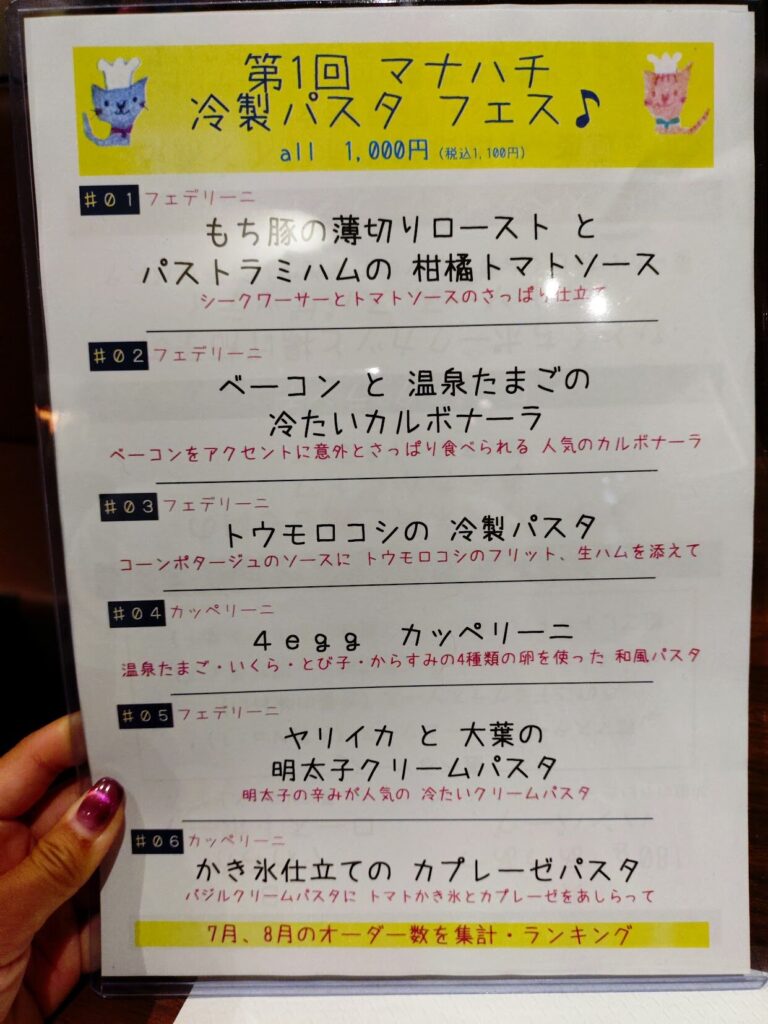 第1回 マナハチ
冷製パスタ フェス♪
all 1,000円 (税込1,100円)
#01 フェデリーニ
もち豚の薄切りロースト と
パストラミハムの 柑橘トマトソース
シークワーサーとトマトソースのさっぱり仕立て
#02 フェデリーニ
ベーコン と 温泉たまごの
冷たいカルボナーラ
ベーコンをアクセントに意外とさっぱり食べられる 人気のカルボナーラ
#03 フェデリーニ
トウモロコシの 冷製パスタ
コーンポタージュのソースに トウモロコシのフリット、生ハムを添えて
#04 カッペリーニ
4egg カッペリーニ
温泉たまご・いくら・とび子・からすみの4種類の卵を使った 和風パスタ
#05 フェデリーニ
ヤリイカ と 大葉の
明太子クリームパスタ
明太子の辛みが人気の 冷たいクリームパスタ
#06 カッペリーニ
かき氷仕立ての カプレーゼパスタ
バジルクリームパスタに トマトかき氷とカプレーゼをあしらって
7月、8月のオーダー数を集計・ランキング